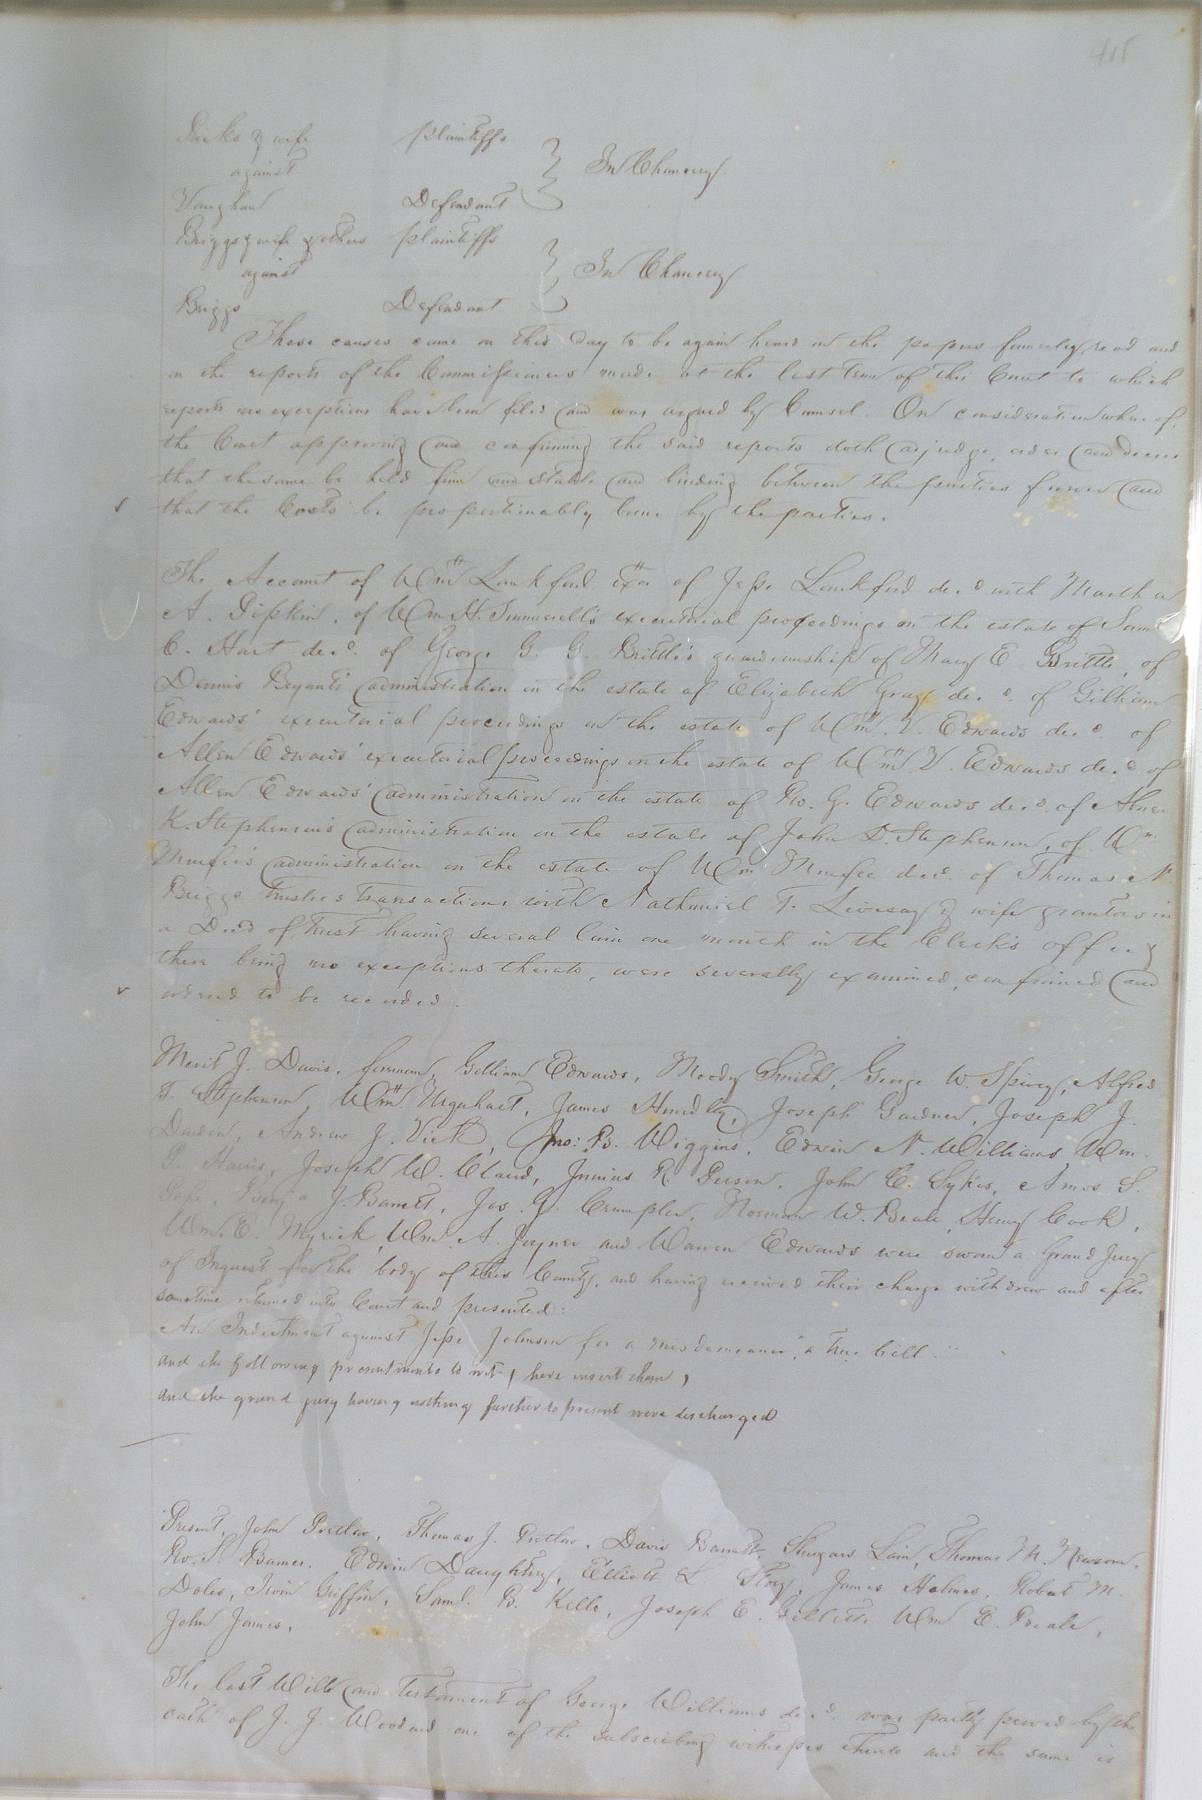 & wife plaintiffs
against In Chancery
Vaughan Defendant
Briggs & wife & others plaintiffs
against In Chancery
Briggs Defendant
These causes came on this day to be again heard on the papers formerly read and
on the reports of the Commissioners made at the last term of this Court to which
reports no exceptions have been filed and was argued by Counsel. On consideration whereof,
the Court approving and confirming the said reports doth adjudge, order and decree
that the same be held firm and stable and binding between the parties forever and
that the Costs be proportionably borne by the parties.
The Account of Wm Lankford exor of Jesse Lankford decd with Martha
A. Pipkin, of Wm H. Summerell's executorial proceedings on the estate of Saml
C. Hart decd. of George G. G. Brittle's guardianship of Mary E Brittle, of
Dennis Bryants administration on the estate of Elizabeth Gray decd. of Gilliam
Edwards' executorial proceedings on the estate of Wm. V. Edwards decd of
Allen Edwards' executorial proceedings on the estate of Wm. V. Edwards decd of
Allen Edwards' administration on the estate of Ro. G. Edwards decd of Abner
K. Stephenson's administration on the estate of John D. Stephenson, of Wm
Murfee's administration on the estate of Wm Murfee decd. of Thomas N.
Briggs trustees transactions with Nathaniel T. Livesay & wife grantors in
a Deed of trust having several lain one month in the Clerk's office &
there being no exceptions thereto, were severally examined, confirmed and
ordered to be recorded.
Merit J. Davis, foreman, Gilliam Edwards, Moody Smith, George W. Spivey, Alfred
T. Stephenson, Wm Urquhart, James Joseph Gardner, Joseph J.
Darden, Andrew J. Vick, Jno: B. Wiggins, Edwin N. Williams, Wm.
P. Harris, Joseph W. Claud, Junius R. Person, John C. Sykes, Amos S.
Pope, Benja J. Barrett, Jas. G. Crumpler, Norman W. Beale, Henry Cook,
Wm. E. Myrick, Wm. A. Joyner and Warren Edwards were sworn a Grand Jury
of Inquest for the body of this County, and having received their charge withdrew and after
sometime returned into Court and presented:
An Indictment against Jesse Johnson for a misdemeanor, "a true bill"
and the following presentments to wit, (here insert them)
and the grand jury having nothing further to present were discharged
Present, John Pretlow, Thomas J. Pretlow, Davis Barrett, Shugars Lain, Thomas M. Newsom,
Ro. S. Barnes, Edwin Daughtrey, Elliott L Story, James Holmes, Robert M.
Doles, Irvin Griffin, Saml. B. Kello, Joseph E. Gillette, Wm E. Beale,
John James,
The last Will and Testament of George Williams decd. was partly proved by the
oath of J. J. Woodard one of the subscribing witnesses thereto and the same is